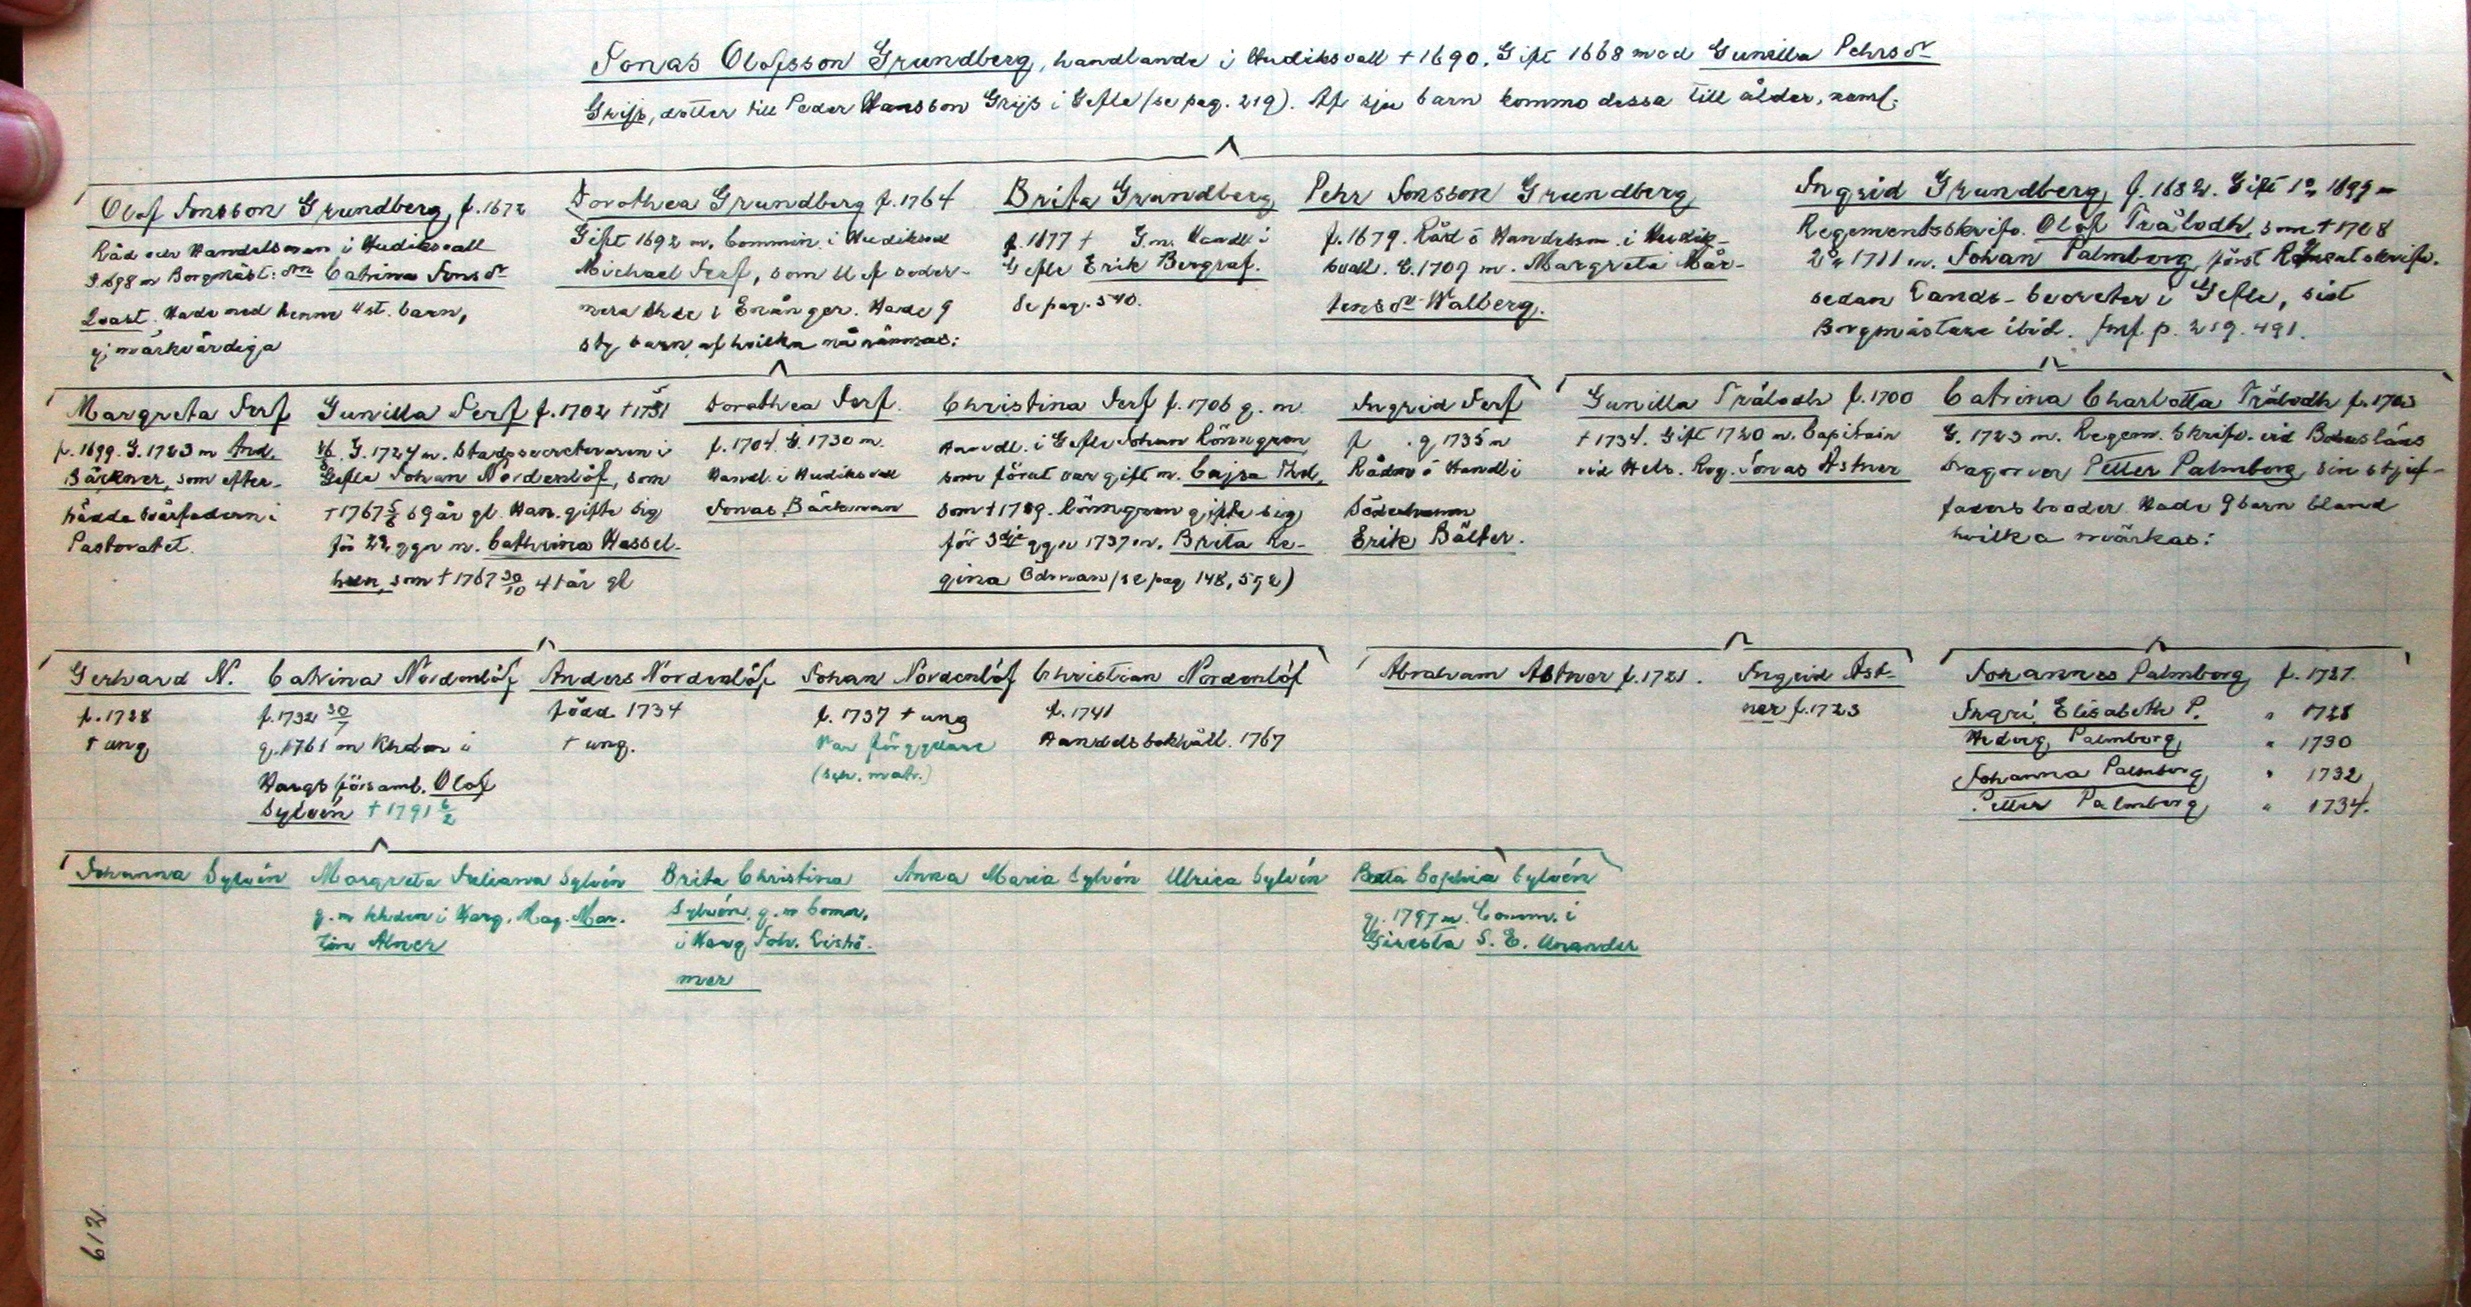 Jonas Olofsson Grundberg, handlande i Hudiksvall † 1690. Gift 1668 med Gunilla Pehrsdr
Grijs, dotter till Peder Hansson Grijs i Gefle (se pag. 219). Af sju barn kommo dessa till ålder, neml:
Olof Jonsson Grundberg, f. 1672
Råd och Handelsman i Hudiksvall
G. 1698 m Borgmäst: Catrina Jonsdr
Qvast. Hade med henne 4 st. barn,
ej märkvärdiga
Dorothea Grundberg f. 1764
Gift 1692 m. Commin. i Hudiksvall
Michael Ferf, som blef seder-
mera Khde i Enånger. Hade 9
st barn, af hvilka må nämnas:
Brita Grundberg
f. 1677 † G. m. Handl i
Gefle Erik Bergraf.
Se pag. 540.
Pehr Jonsson Grundberg
f. 1679. Råd o Handelsm. i Hudik-
svall. G. 1709 m. Margreta Mår-
tensdr Walberg.
Ingrid Grundberg, f. 1682. Gift 1o 1699 m
Regementsskrifv. Olof Trälodh, som † 1708
2o 1711 m. Johan Palmberg, först skrifv.
sedan Lands-secreter i Gefle, sist
Borgmästare ibid. Jmf. p. 219. 491.
Margreta Ferf
f. 1699. G. 1723 m And.
Bäckner, som efter-
trädde svärfadern i
Pastoratet.
Gunilla Ferf f. 1702 † 1731
G. 1724 m. Stadssecreteraren i
Gefle Johan Nordenlöf, som
† 1767 69 år gl. Han gifte sig
för 2a ggn m. Cathrina Hassel-
hun, som † 1767 30/10 41 år gl
Dorothea Ferf.
f. 1704. G. 1730 m.
Handl. i Hudiksvall
Jonas Bäckman
Christina Ferf f. 1706 g. m.
Handl. i Gefle Johan Rönngren
som förut var gift m. Cajsa
som † 1729. Rönngren gifte sig
för 3dje ggn 1737 m. Brita Re-
gina Ödman (se pag 148, 592)
Ingrid Ferf
f . g 1735 m
Rådm o Handl i
Söderhamn
Erik Bälter.
Gunilla Trälodh f. 1700
† 1734. Gift 1720 m. Capitain
vid Hels. Reg. Jonas Astner
Catrina Charlotta Trälodh f. 1703
G. 1723 m. Regem. Skrifv. vid Bohusläns
Dragoner Petter Palmberg, sin styf-
faders broder. Hade 9 barn bland
hvilka märkas:
Gerhard N.
f. 1728
† ung
Catrina Nordenlöf
f. 1732 30/7
g. 1761 m Khden i
Hargs församl. Olof
Sylvén † 1791 6/2
Anders Nordenlöf
född 1734
† ung.
Johan Nordenlöf
f. 1737 † ung
Var färggvare
(sch. matr.)
Christian Nordenlöf
f. 1741
Handelsbokhåll. 1767
Abraham Astner f. 1721.
Ingrid Ast-
ner f. 1723
Johannes Palmberg f. 1727.
Ingri Elisabeth P. " 1728
Hedvig Palmberg " 1730
Johanna Palmberg " 1732
Petter Palmberg " 1734.
Johanna Sylvén
Margreta Juliana Sylvén
g. m Khden i Harg, Mag. Mar-
tin Alner
Brita Christina
Sylvén, g. m Comm.
i Harg Joh. Liströ-
mer
Anna Maria Sylvén
Ulrica Sylvén
Beata Sophia Sylvén
g. 1797 m. Comm. i
Giresta S. E. Unander
612